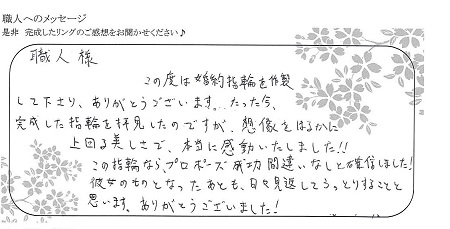 職人へのメッセージ
是非 完成したリングのご感想をお聞かせください♪
職人様
この度は婚約指輪を作製
して下さり、ありがとうございます。たった今、
完成した指輪を拝見したのですが、想像をはるかに
上回る美しさで、本当に感動いたしました!!
この指輪なら、プロポーズ成功間違いなしと確信しました!
彼女のものとなったあとも、日々見返してうっとりすることと
思います。ありがとうございました!